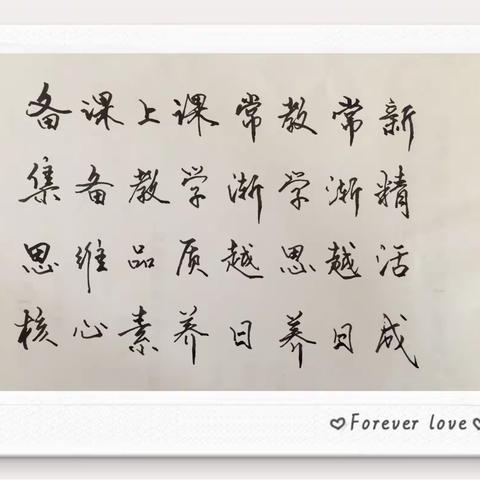 备课上课常教常新
集备教学渐学渐精
思维品质越思越活
核心素养日养日成
♡Forever love♡